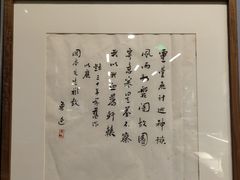 靈臺無計逃神矢
風雨如磐闇故園
寄意寒星荃不察
我以我血薦軒轅
題三十年前舊作
以應
岡本先生雅教
魯迅